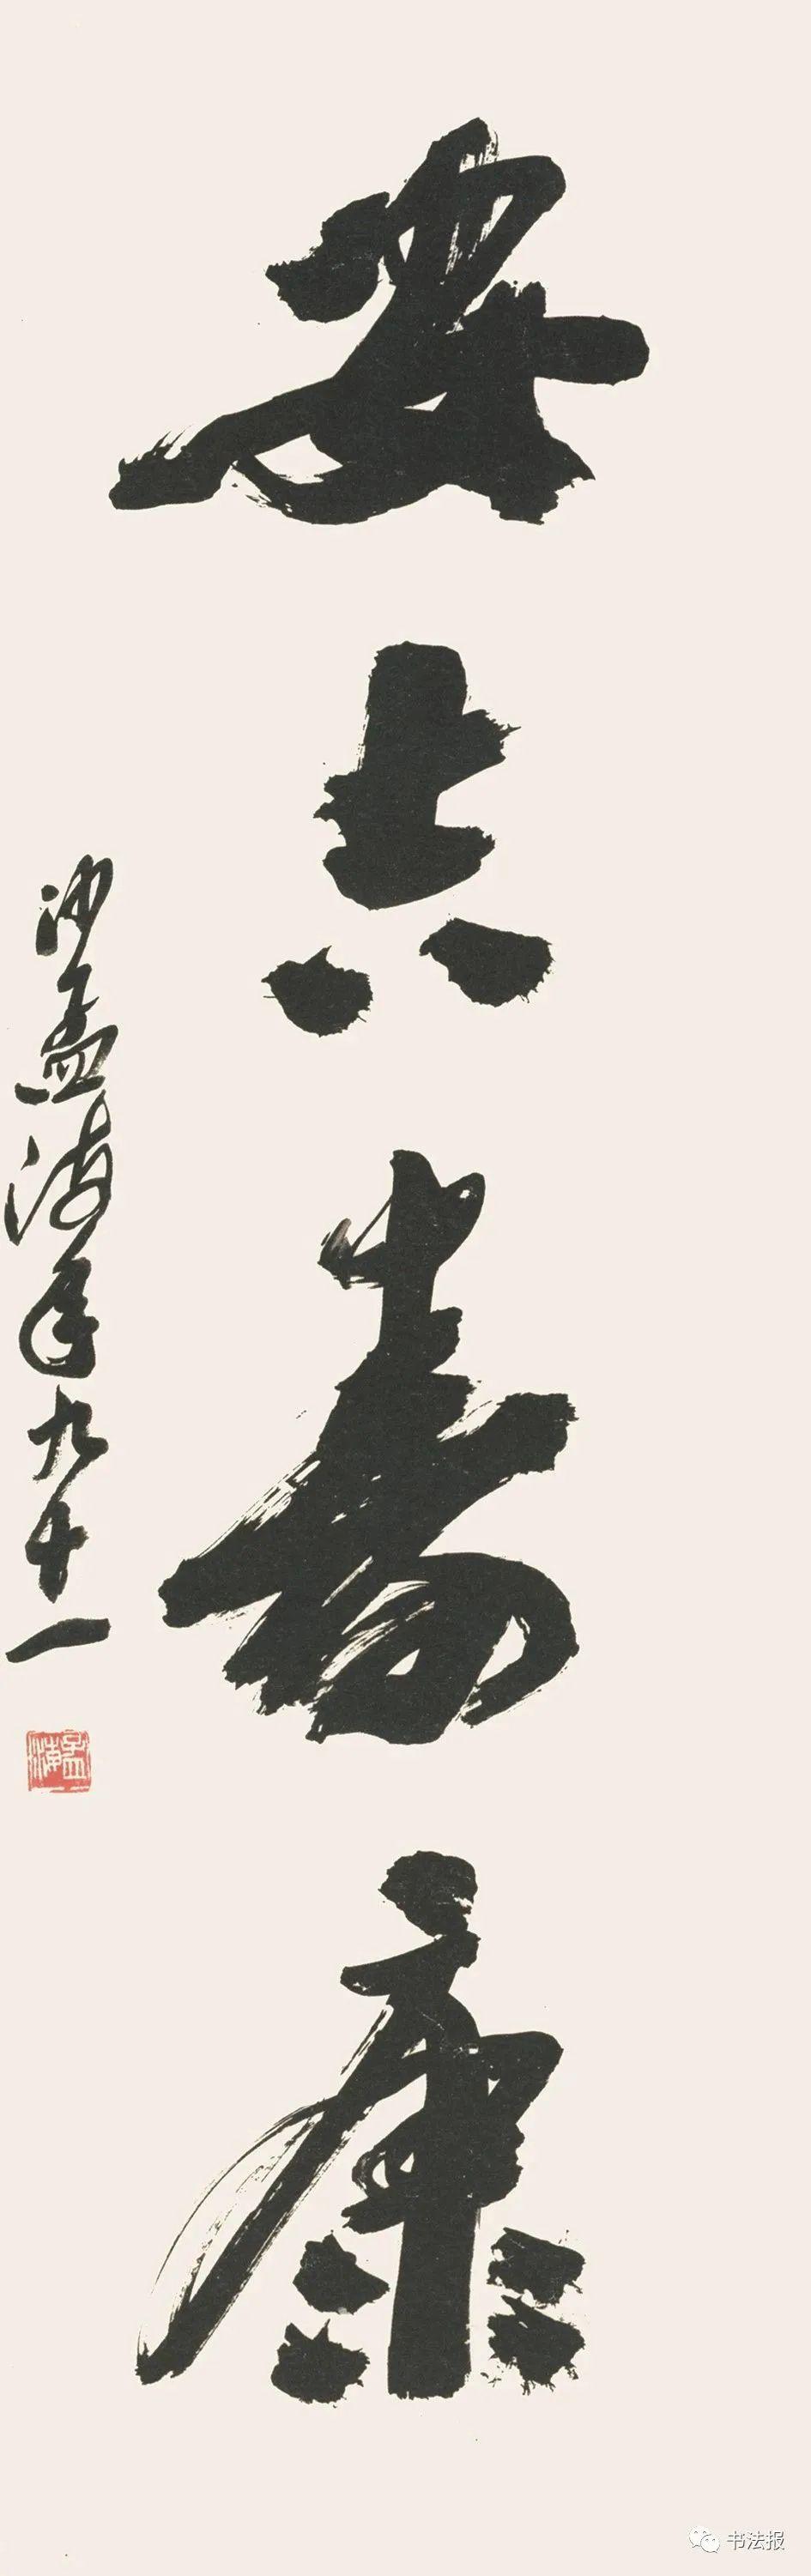 安吉壽康
沙孟海年九十一
孟海
书法报